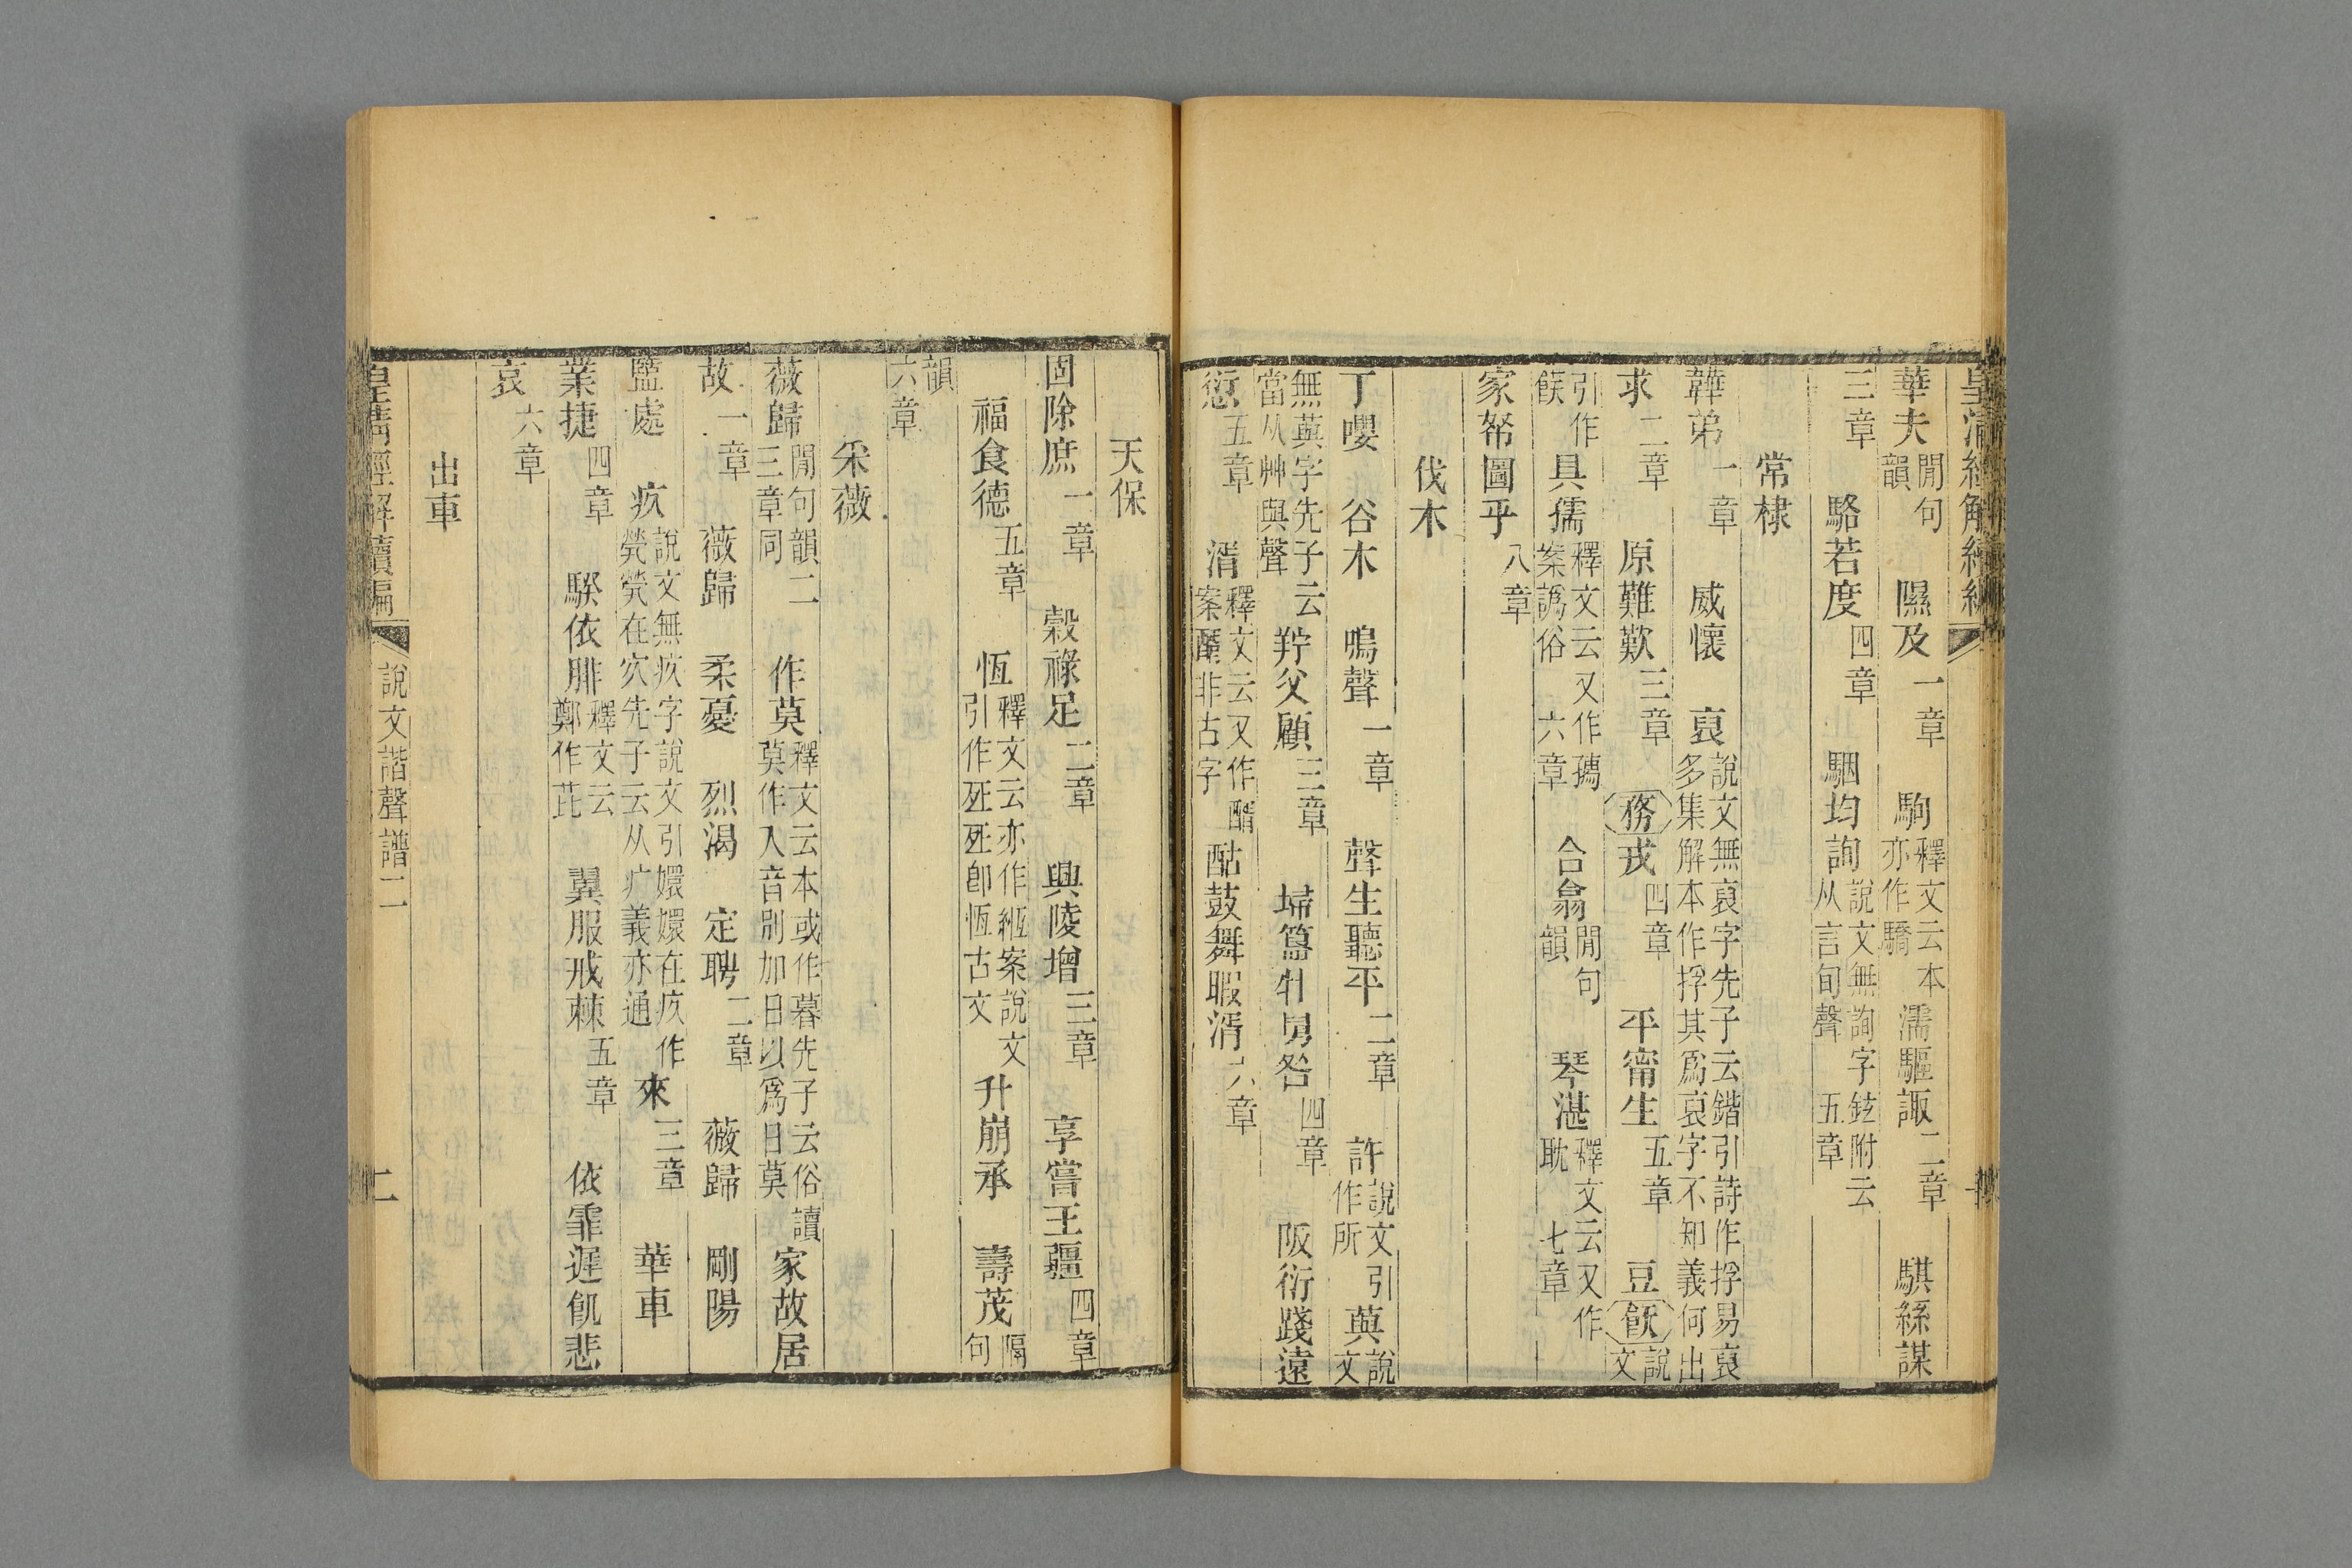 皇清經解續編
華夫閒句韻 隰及一章 駒釋文云本亦作驕濡驅諏二章 騏絲謀
三章 駱若度四章 駰均詢說文無詢字鉉附云从言旬聲五章
常棣
韡弟一章 威懷 裒說文無裒字先子云鍇引詩作捊易裒多集解本作捊其爲裒字不知義何出
求二章 原難歎三章 務戎四章 平甯生五章 豆飫說文
引作䬵具孺釋文云又作𡦗案譌俗六章 合翕閒句韻 琴湛釋文云又作耽七章
家帑圖乎八章
伐木
丁嚶 谷木 鳴聲一章 聲生聽平二章 許說文引作所 藇說文
無藇字先子云當从艸與聲 羜父顧三章 埽簋牡舅咎四章 阪衍踐遠
愆五章 湑釋文云又作醑案醑非古字 酤鼓舞暇湑六章
天保
固除庶一章 穀祿足二章 興陵增三章 享嘗王疆四章
福食德五章 恆釋文云亦作緪案說文引作死死卽恆古文 升崩承 壽茂隔句
韻六章
采薇
薇歸閒句韻二三章同 作莫釋文云本或作暮先子云俗讀莫作入音別加日以爲日莫 家故居
故一章 薇歸 柔憂 烈渴 定聘二章 薇歸 剛陽
盬處 疚說文無疚字說文引嬛嬛在疚作煢煢在㝌先子云从疒義亦通 來三章 華車
業捷四章 騤依腓釋文云鄭作芘 翼服戒棘五章 依霏遲飢悲
哀六章
出車
皇清經解續編 說文諧聲譜二 二